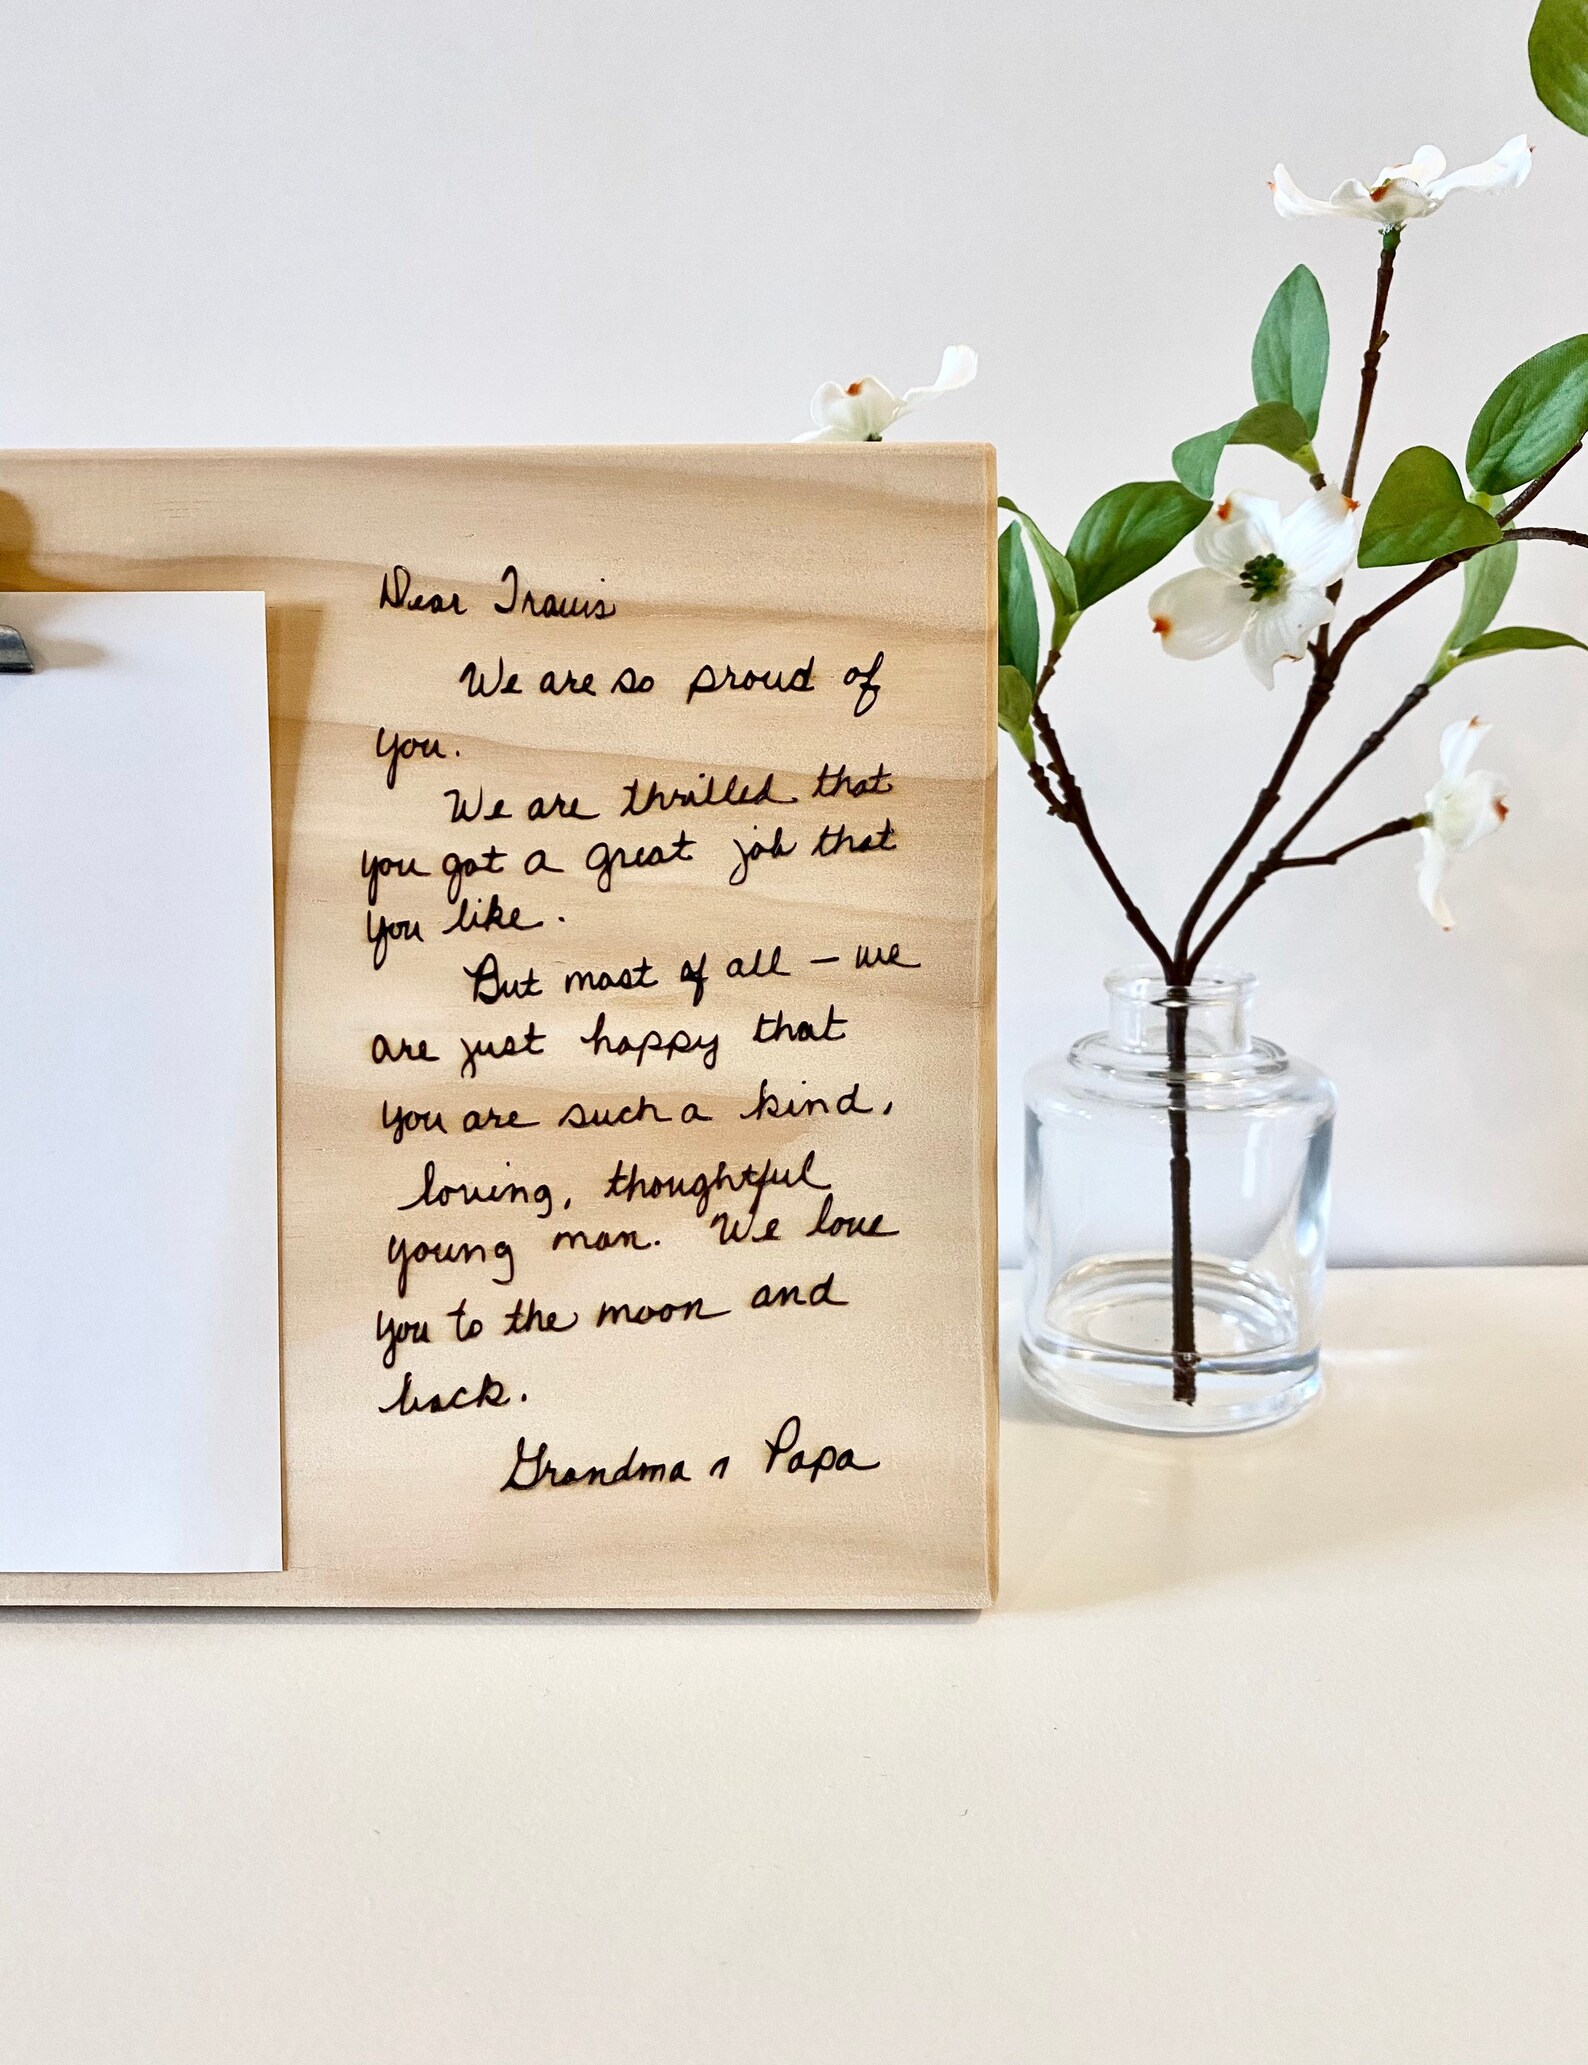 Dear Travis
We are so proud of
you.
We are thrilled that
you got a great job that
you like.
But most of all – we
are just happy that
you are such a kind,
loving, thoughtful
young man. We love
you to the moon and
back.
Grandma n Papa